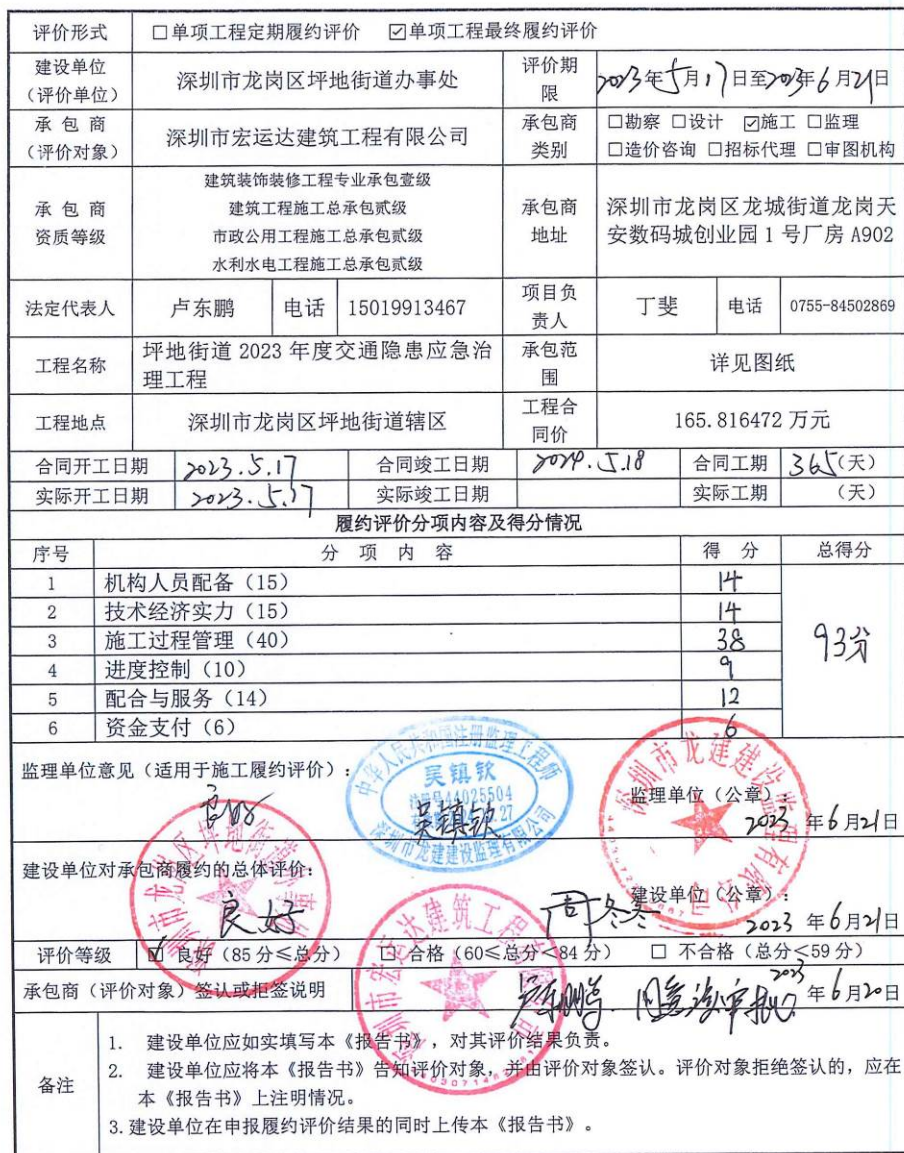 评价形式 □单项工程定期履约评价 ☑单项工程最终履约评价
建设单位（评价单位） 深圳市龙岗区坪地街道办事处 评价期限 2023年5月17日至2023年6月21日
承包商（评价对象） 深圳市宏运达建筑工程有限公司 承包商类别 □勘察 □设计 ☑施工 □监理
□造价咨询 □招标代理 □审图机构
承包商资质等级 建筑装饰装修工程专业承包壹级
建筑工程施工总承包贰级
市政公用工程施工总承包贰级
水利水电工程施工总承包贰级
承包商地址 深圳市龙岗区龙城街道龙岗天
安数码城创业园1号厂房A902
法定代表人 卢东鹏 电话 15019913467 项目负责人 丁斐 电话 0755-84502869
工程名称 坪地街道2023年度交通隐患应急治
理工程 承包范围 详见图纸
工程地点 深圳市龙岗区坪地街道辖区 工程合同价 165.816472万元
合同开工日期 2023.5.17 合同竣工日期 2024.5.18 合同工期 365(天)
实际开工日期 2023.5.17 实际竣工日期 实际工期 (天)
履约评价分项内容及得分情况
序号 分项内容 得分 总得分
1 机构人员配备（15） 14
2 技术经济实力（15） 14
3 施工过程管理（40） 38
93分
4 进度控制（10） 9
5 配合与服务（14） 12
6 资金支付（6） 6
监理单位意见（适用于施工履约评价）：
良好
中华人民共和国注册监理工程师
吴镇钦
注册号44025504
深圳市龙建建设监理有限公司
吴镇钦
深圳市龙建建设监理有限公司
监理单位（公章）
2023年6月21日
建设单位对承包商履约的总体评价：
良好
深圳市龙岗区坪地街道办事处
周冬冬
建设单位（公章）：
2023年6月21日
评价等级 ☑ 良好（85分≤总分） □ 合格（60≤总分<84分） □ 不合格（总分<59分）
深圳市宏运达建筑工程有限公司
承包商（评价对象）签认或拒签说明 2023年6月20日
备注 1. 建设单位应如实填写本《报告书》，对其评价结果负责。
2. 建设单位应将本《报告书》告知评价对象，并由评价对象签认。评价对象拒绝签认的，应在
本《报告书》上注明情况。
3.建设单位在申报履约评价结果的同时上传本《报告书》。